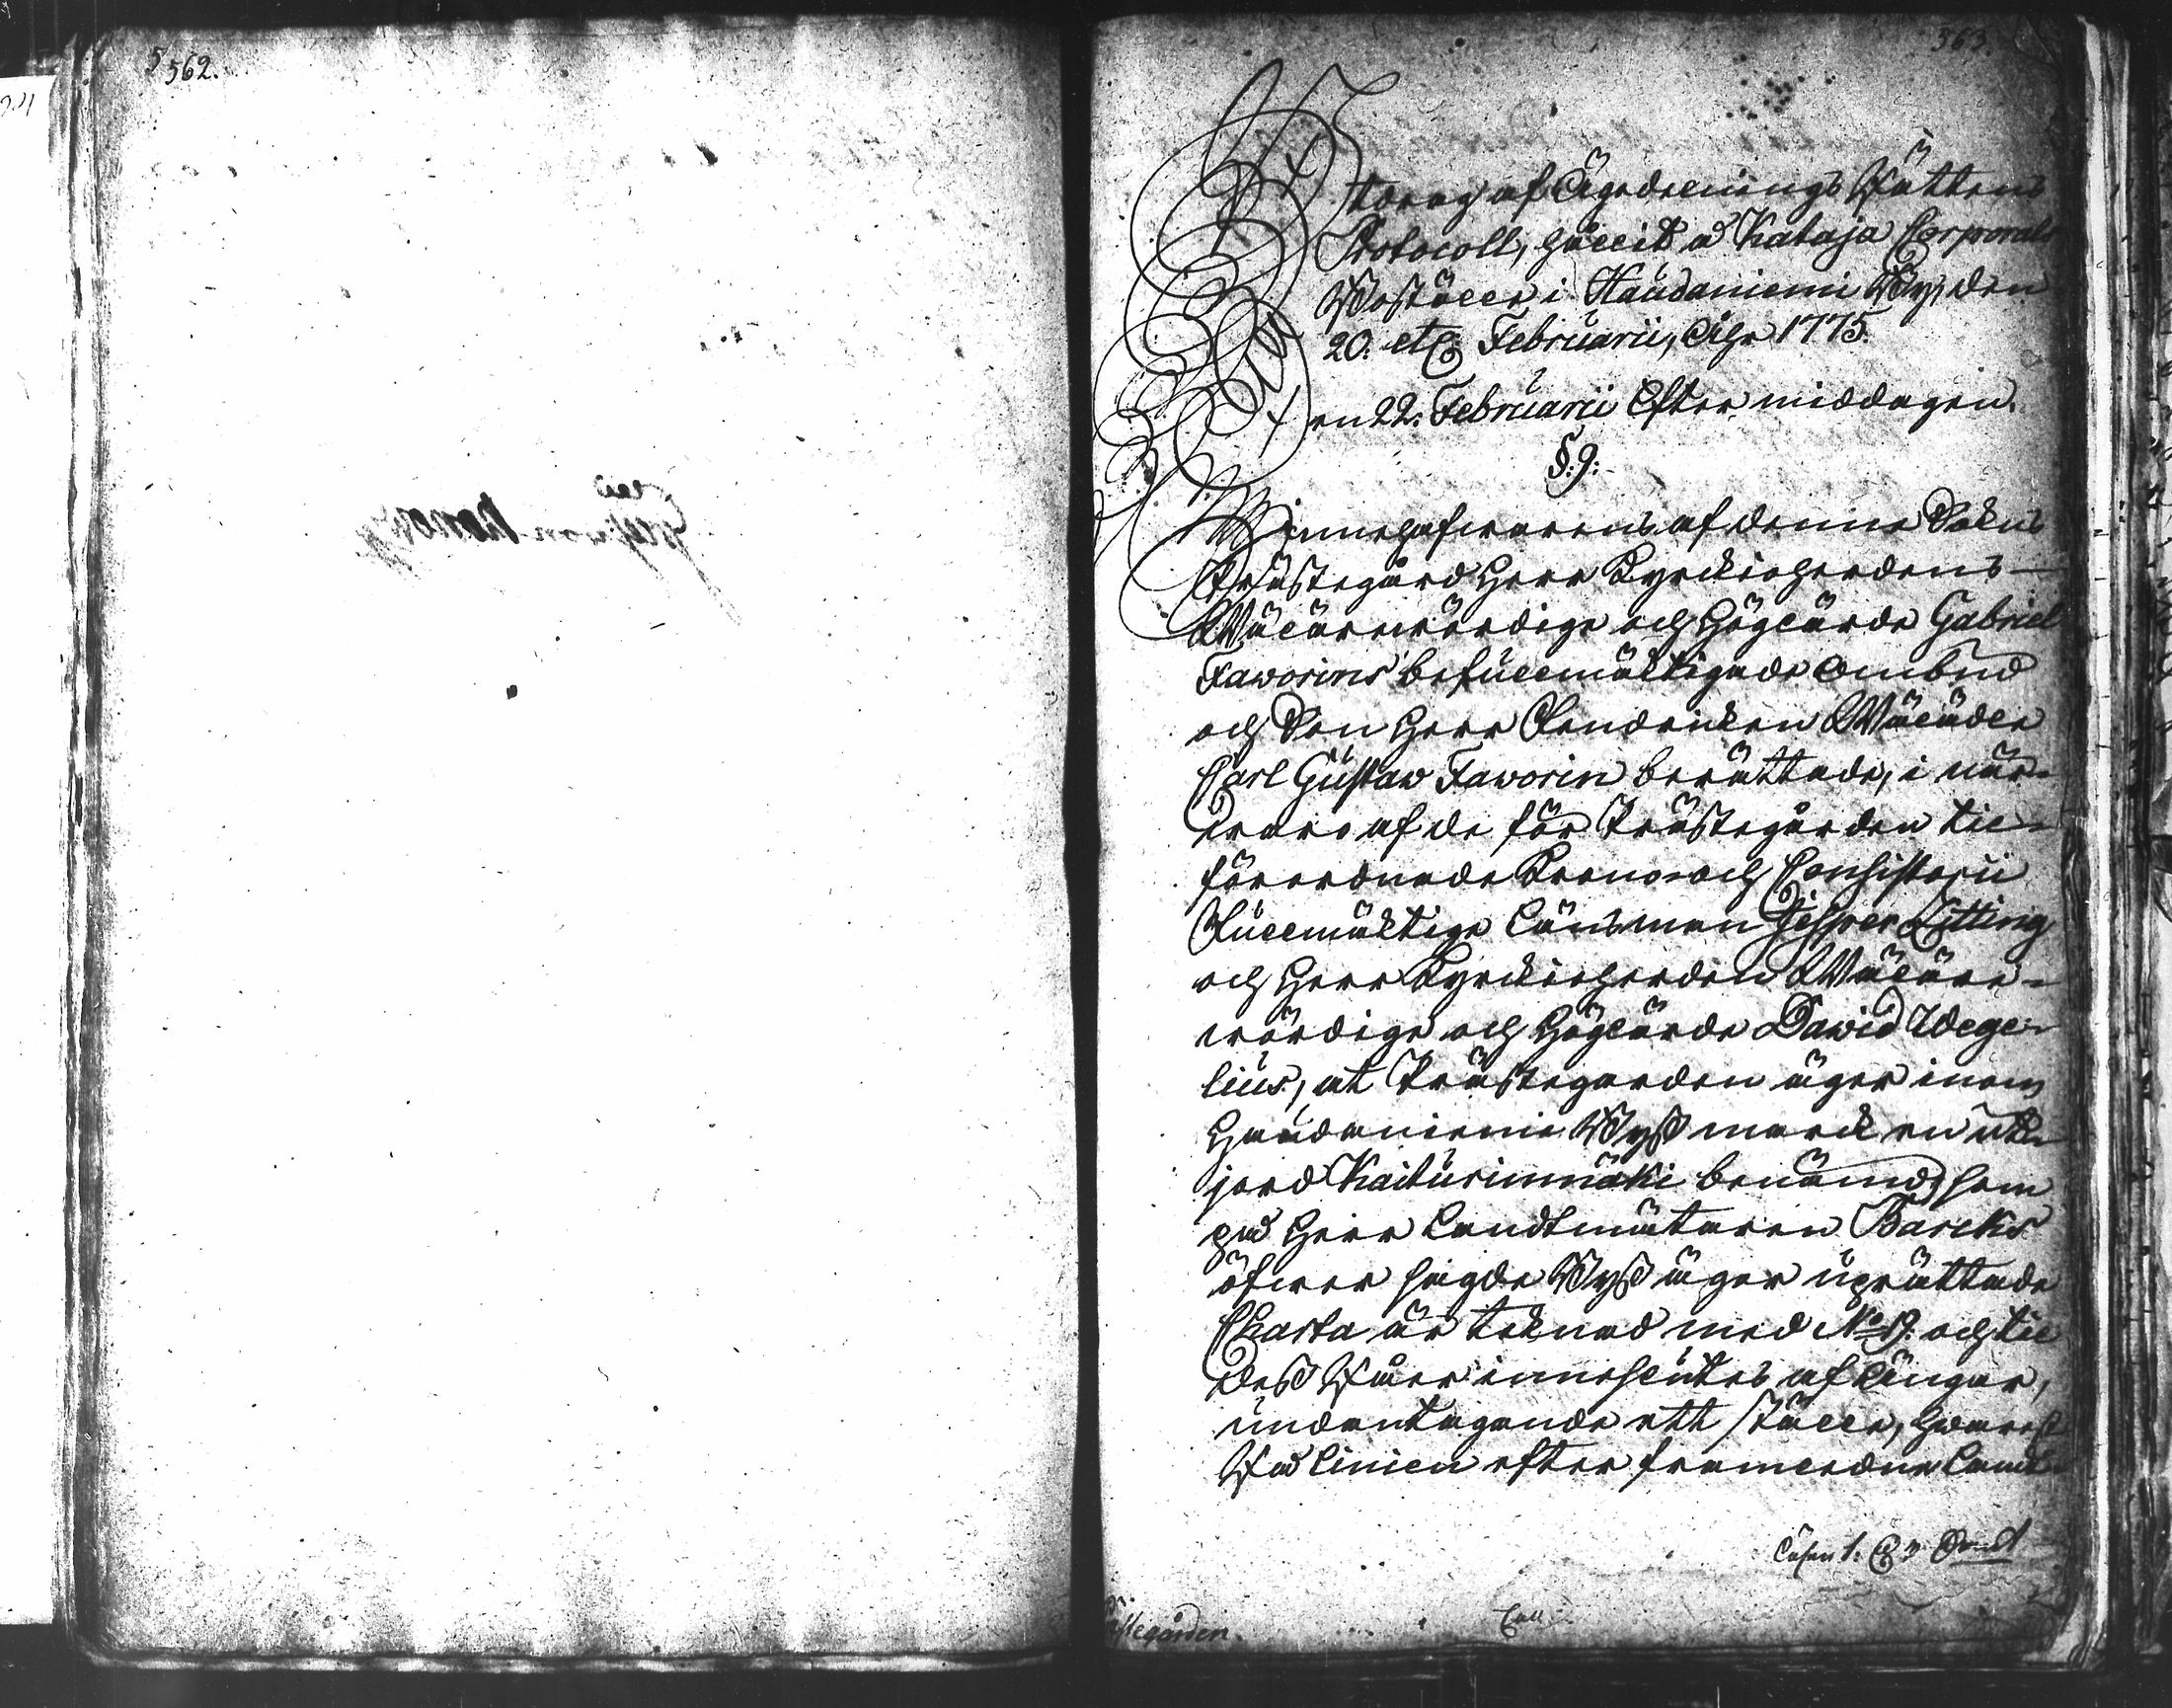 562.
563.
Utdrag af Ägodelnings Rättens
Protocoll, hållit å Kataja Corporals
Boställe i Haudaniemi By, den
20. etc. Februarii, Åhr 1775.
Den 22. Februarii Eftermiddagen.
§: 9:
Innehafwarens af denne Sokns
Prästegård Herr Kyrckioherdens
Wälärewördige och Höglärde Gabriel
Faworins befullmäktigade Ombud
och Son Herr Studenten Wälädle
Carl Gustaw Faworin berättade, i när-
waro af de för Prästegården til-
förordnade Krono- och Consistorii
Fullmäktige Länsman Jesper Litting
och Herr Kyrckioherden Wäläre-
wördige och Höglärde Dawid Wege-
lius, at Prästegården äger inom
Haudaniemi Byß marck en ut-
jord Kaiturinmäki benämd, som
på Herr Landtmätaren Barcks
öfwer sagde Byß ägor uprättade
Charta är teknad med No 19. och til
deß Rår inneslutes af Längor,
undantagande ett ställe, hwarest
Rå linien efter framledne Landt-
Prästegården.